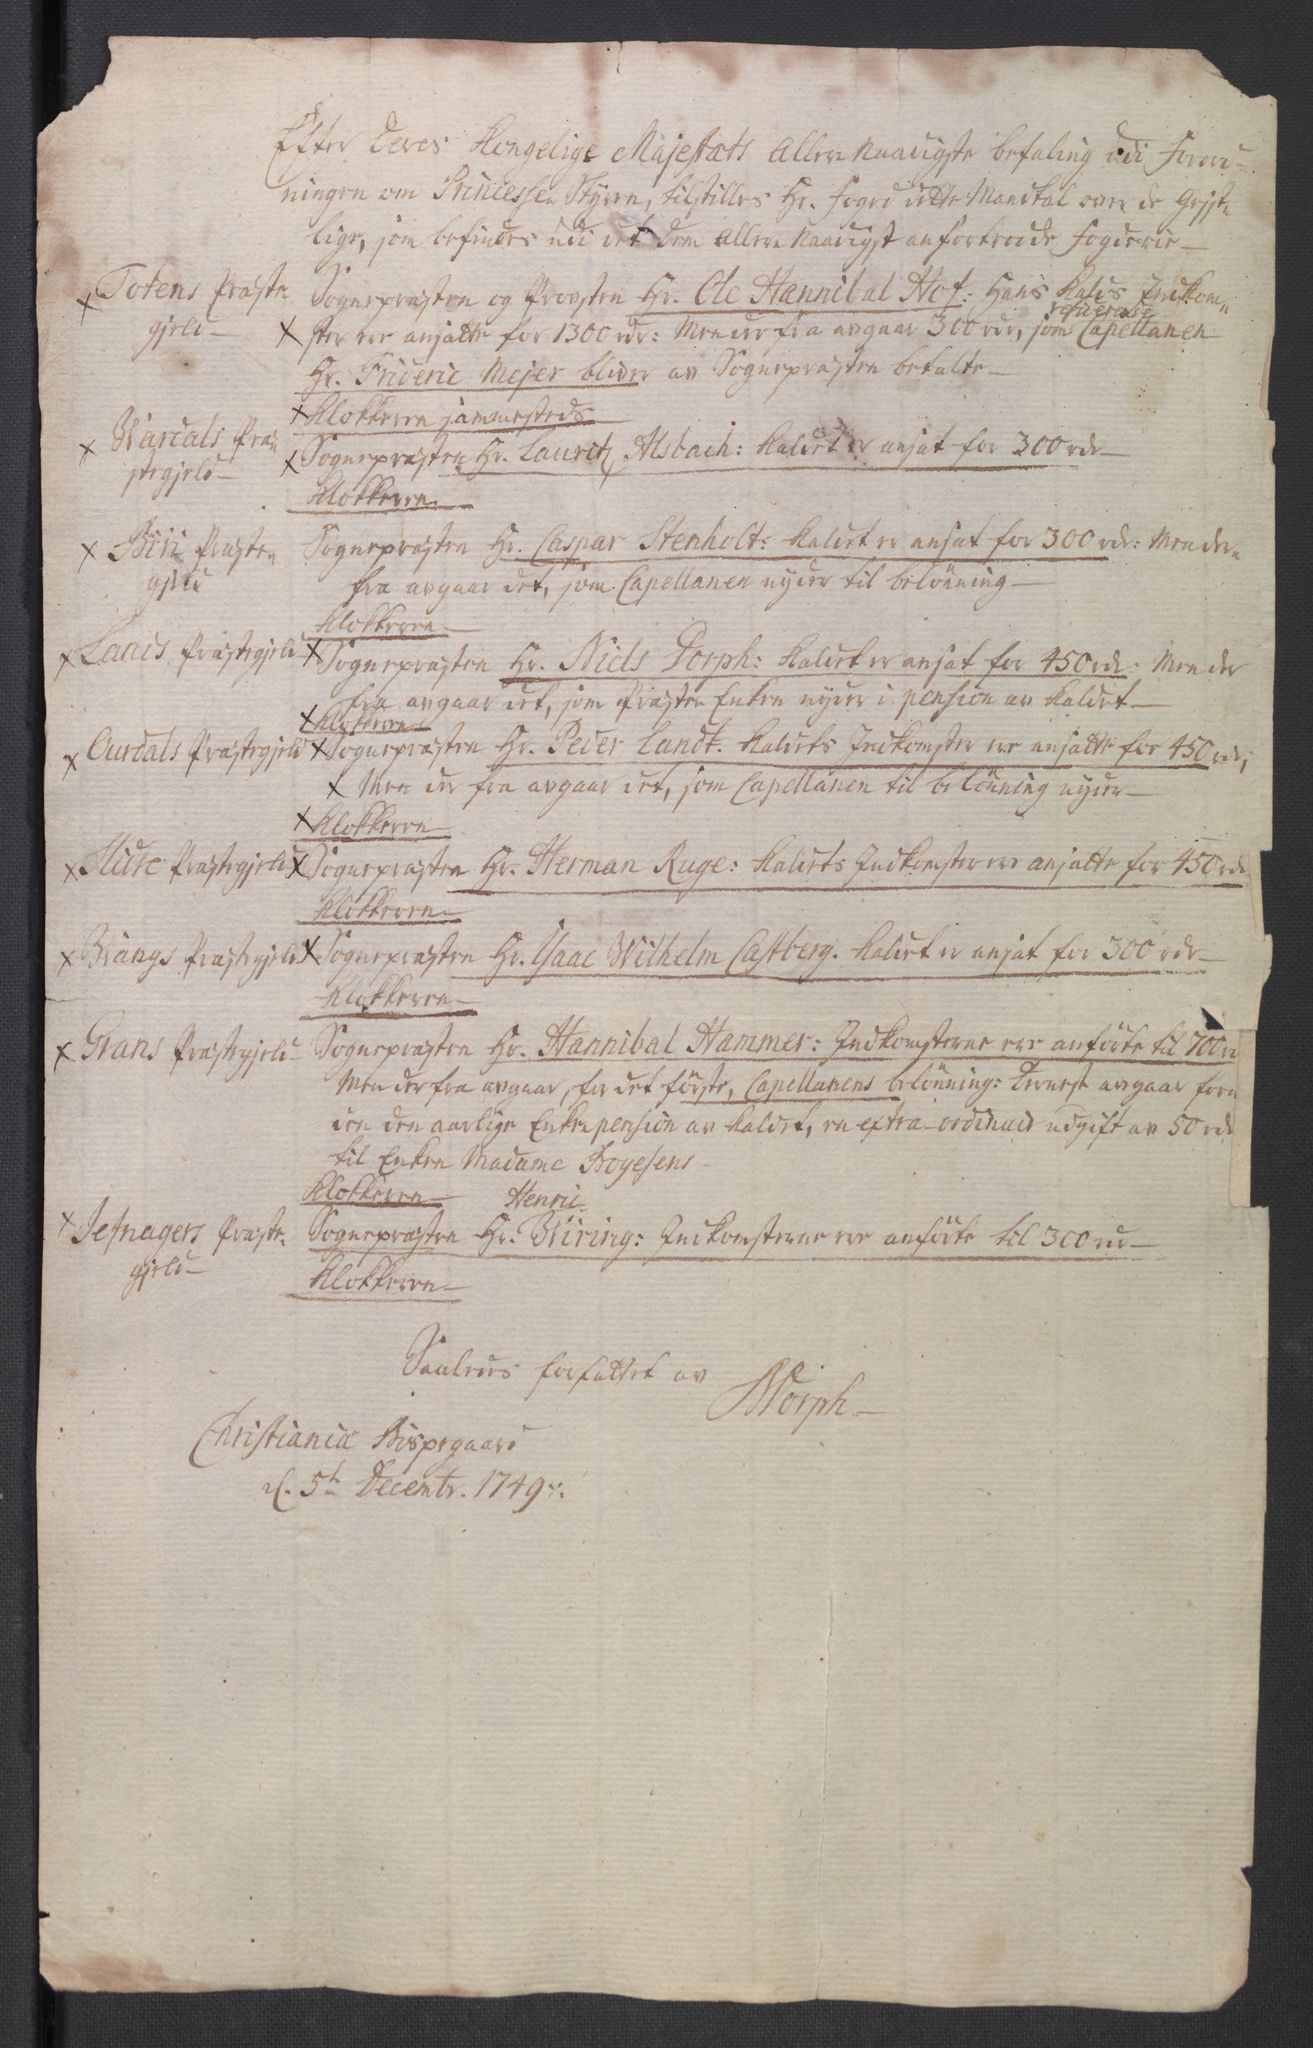 Efter Deres Kongelige Majestæts Aller Naadigste befaling udi Forord-
ningen om Princesse Styren, tilstilles Hr. Foged dette Mandtal over de Gejst-
lige, som befindes udi det dem Aller Naadigst anfortroede Fogderie -
Totens Præste-
gjeld -
Sognepræsten og Provsten Hr. Ole Hannibal Hof: Hans Kalds Indkom-
ster ere ansatte for 1300 rdr: Men der fra avgaar 300 rdr, som Capellanen
Hr. Frideric Mejer bliver av Sognepræsten betalte -
Klokkeren sammesteds
Wardals Præ-
stegjeld -
Sognepræsten Hr. Lauritz Alsbach: Kaldet er ansat for 300 rdr -
Klokkeren -
Biri Præste-
gjeld
Sognepræsten Hr. Caspar Stenholt: Kaldet er ansat for 300 rdr: Men der-
fra avgaar det, som Capellanen nyder til belönning -
Klokkeren -
Lands Præstegjeld
Sognepræsten Hr. Niels Dorph: Kaldet er ansat for 450 rdr: Men der
fra avgaar det, som Præste Enken nyder i pension av Kaldet -
Klokkeren -
Ourdals Præstegjeld
Sognepræsten Hr. Peder Landt. Kaldets Indkomster ere ansatte for 450 rdr;
Men der fra avgaar det, som Capellanen til belönning nyder -
Klokkeren -
Slidre Præstegjeld
Sognepræsten Hr. Herman Ruge: Kaldets Indkomster ere ansatte for 450 rdr
Klokkeren -
Wangs Præstegjeld
Sognepræsten Hr. Isaac Wilhelm Castberg. Kaldet er ansat for 300 rdr -
Klokkeren -
Grans Præstegjeld -
Sognepræsten Hr. Hannibal Hammer: Indkomsterne ere anförte til 700 r
Men der fra avgaar, for det förste, Capellanens belönning: Dernest avgaar foru
den den aarlige Enkepension av Kaldet, en extra-ordinair udgift av 50 rdr
til Enken Madame Boyesens -
Klokkeren -
Jefnagers Præste-
gjeld -
Henric
Sognepræsten Hr. Wiring: Indkomsterne ere anförte til 300 rdr -
Klokkeren -
Saaledes forfattet av
NDorph -
Christianiæ Bispegaard
d. 5te Decembr. 1749.